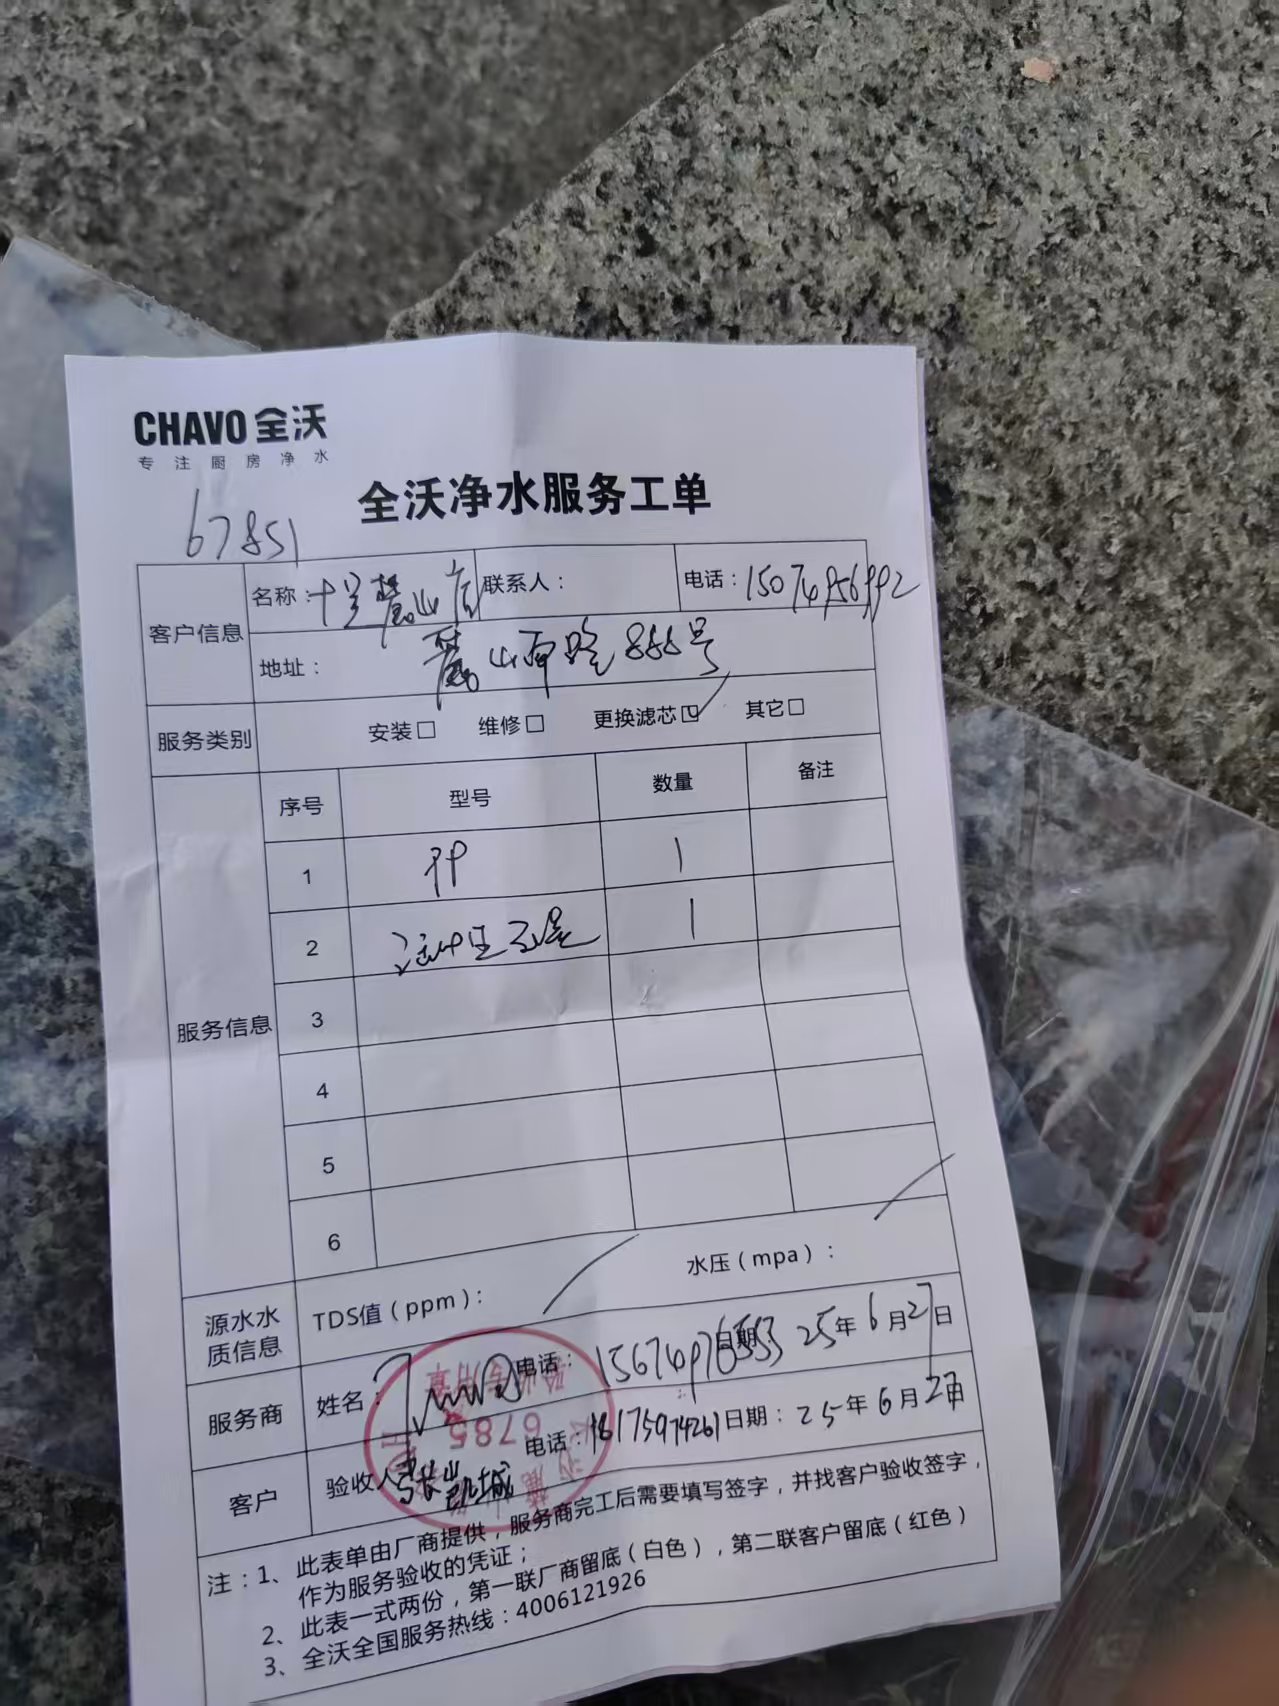 CHAVO 全沃
专注厨房净水
全沃净水服务工单
67851
客户信息
名称：麓山店 联系人： 电话：15074956992
地址： 麓山南路886号
服务类别 安装□ 维修□ 更换滤芯☑ 其它□
服务信息
序号 型号 数量 备注
1 PP 1
2 1
3
4
5
6
源水水质信息 TDS值（ppm）： 水压（mpa）：
服务商 姓名： 电话： 日期 25年6月27日
客户 验收人 电话：18175974261 日期：25年6月27日
6785
注：1、此表单由厂商提供，服务商完工后需要填写签字，并找客户验收签字，
作为服务验收的凭证；
2、此表一式两份，第一联厂商留底（白色），第二联客户留底（红色）
3、全沃全国服务热线：4006121926